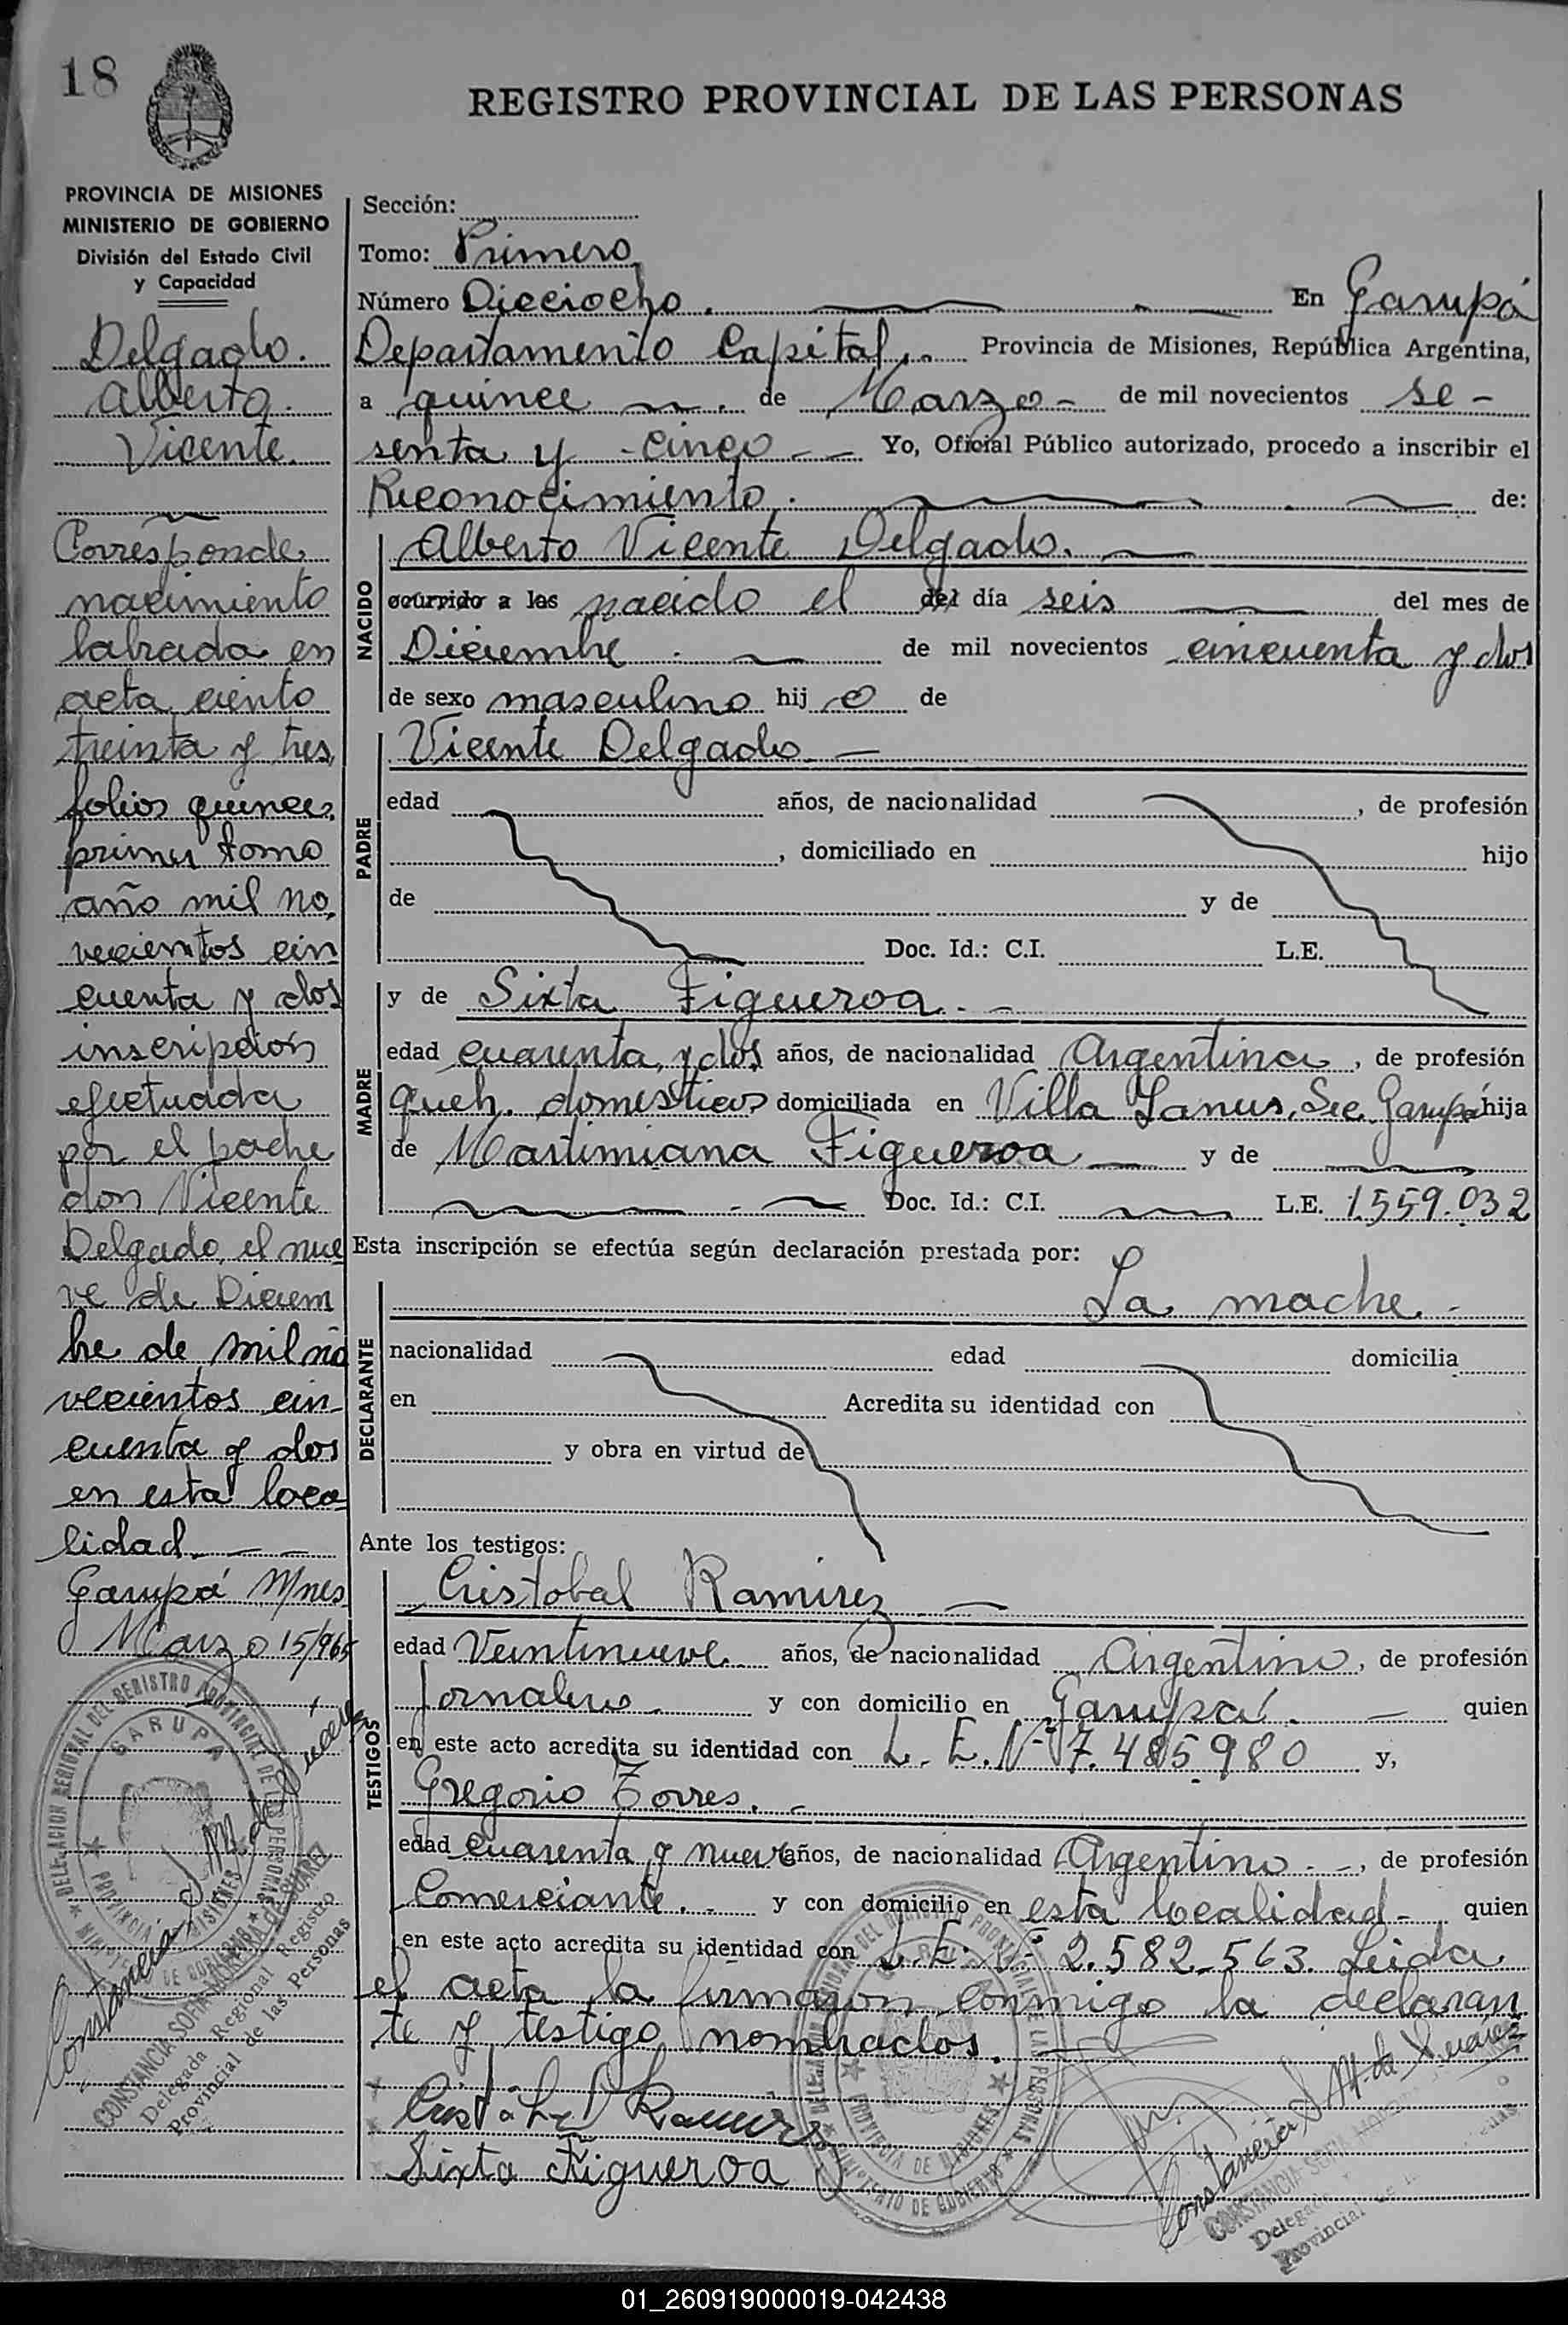 18
REGISTRO PROVINCIAL DE LAS PERSONAS
PROVINCIA DE MISIONES
MINISTERIO DE GOBIERNO
División del Estado Civil
y Capacidad
Delgado.
Alberto.
Vicente.
Corresponde
nacimiento
labrada en
acta ciento
treinta y tres,
folios quince,
primer tomo
año mil no,
vecientos cin
cuenta y dos
inscripción
efectuada
por el padre
don Vicente
Delgado, el nue
ve de Diciem
bre de mil no
vecientos cin-
cuenta y dos
en esta loca
lidad.
Garupá Mnes
Marzo 15/965
Sección:
Tomo: Primero
Número Dieciocho. En Garupá
Departamento Capital. Provincia de Misiones, República Argentina,
a quince de Marzo - de mil novecientos se -
senta y cinco Yo, Oficial Público autorizado, procedo a inscribir el
Reconocimiento. de:
NACIDO
Alberto Vicente Delgado.
ocurrido a las nacido el del día seis del mes de
Diciembre. de mil novecientos cincuenta y dos
de sexo masculino hij o de
PADRE
Vicente Delgado
edad años, de nacionalidad , de profesión
, domiciliado en hijo
de y de
Doc. Id.: C.I. L.E.
MADRE
y de Sixta Figueroa.
edad cuarenta y dos años, de nacionalidad Argentina, de profesión
queh. domesticos domiciliada en Villa Lanus, Sec. Garupá hija
de Martimiana Figueroa y de
Doc. Id.: C.I. L.E. 1.559.032
Esta inscripción se efectúa según declaración prestada por:
DECLARANTE
La madre.
nacionalidad edad domicilia
en Acredita su identidad con
y obra en virtud de
Ante los testigos:
TESTIGOS
Cristobal Ramirez
edad Veintinueve años, de nacionalidad Argentino, de profesión
Jornalero y con domicilio en Garupá. quien
en este acto acredita su identidad con L. E. Nº 7.485980 y,
Gregorio Torres.
edad cuarenta y nueve años, de nacionalidad Argentino, de profesión
Comerciante. y con domicilio en esta localidad - quien
en este acto acredita su identidad con L.E: Nº 2.582.563. Leida
el acta la firmaron conmigo la declaran
te y testigo nombrados.
Cristobal Ramires
Sixta Figueroa
Constancia S M. de Suárez
CONSTANCIA SOFIA MOREIRA DE SUAREZ
Delegada Regional Registro
Provincial de las Personas
DELEGACION REGIONAL DEL REGISTRO PROVINCIAL DE LAS PERSONAS
GARUPA
PROVINCIA DE MISIONES
MINISTERIO DE GOBIERNO
01_260919000019-042438